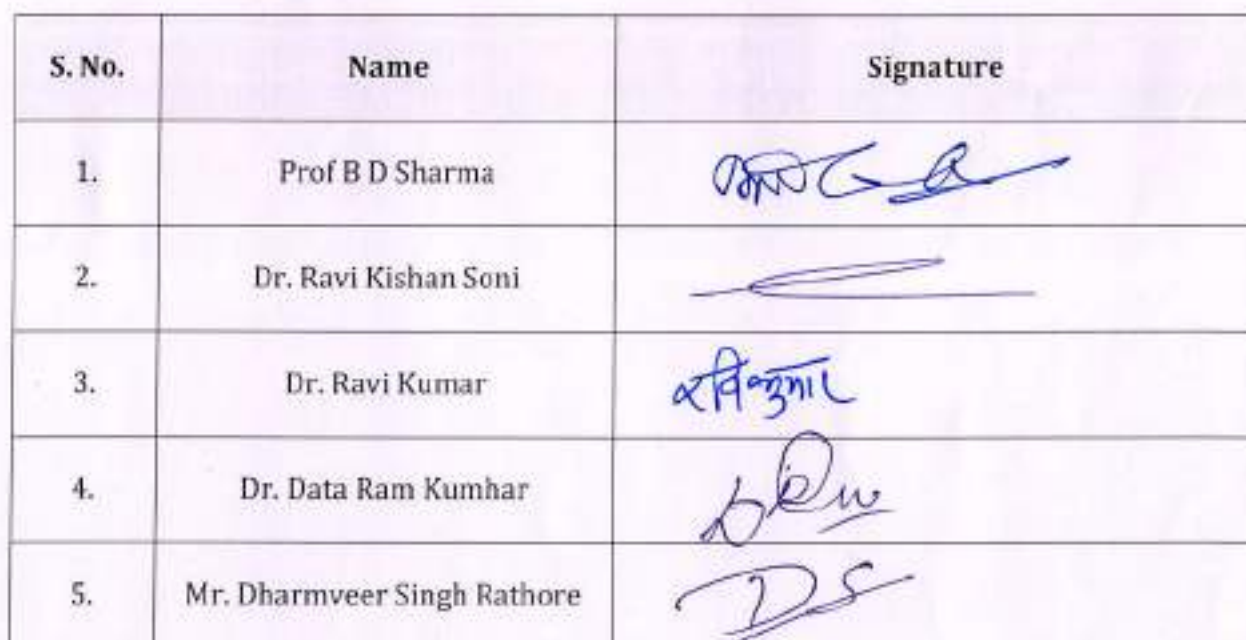 S. No. Name Signature
1. Prof B D Sharma
2. Dr. Ravi Kishan Soni
3. Dr. Ravi Kumar रविकुमार
4. Dr. Data Ram Kumhar
5. Mr. Dharmveer Singh Rathore DS